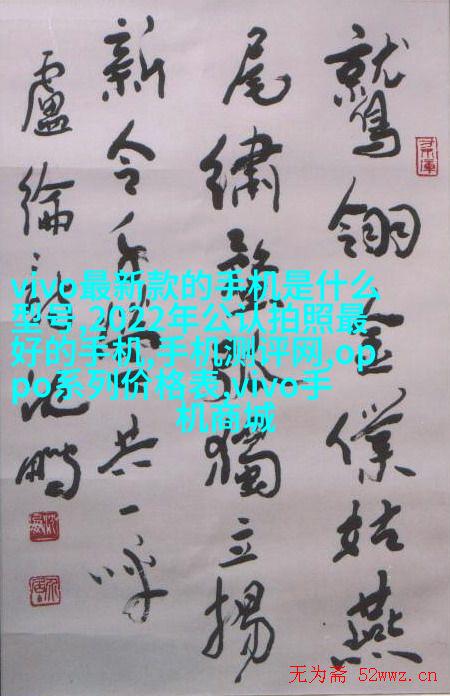 鷲翎金僕姑燕
尾繡蝥弧獨立揚
新令千營共一呼
盧綸詩沈鵬
vivo最新款的手机是什么
型号,2022年公认拍照最
好的手机,手机测评网,op
po系列价格表,vivo手
机商城
无为斋 52wwz.cn